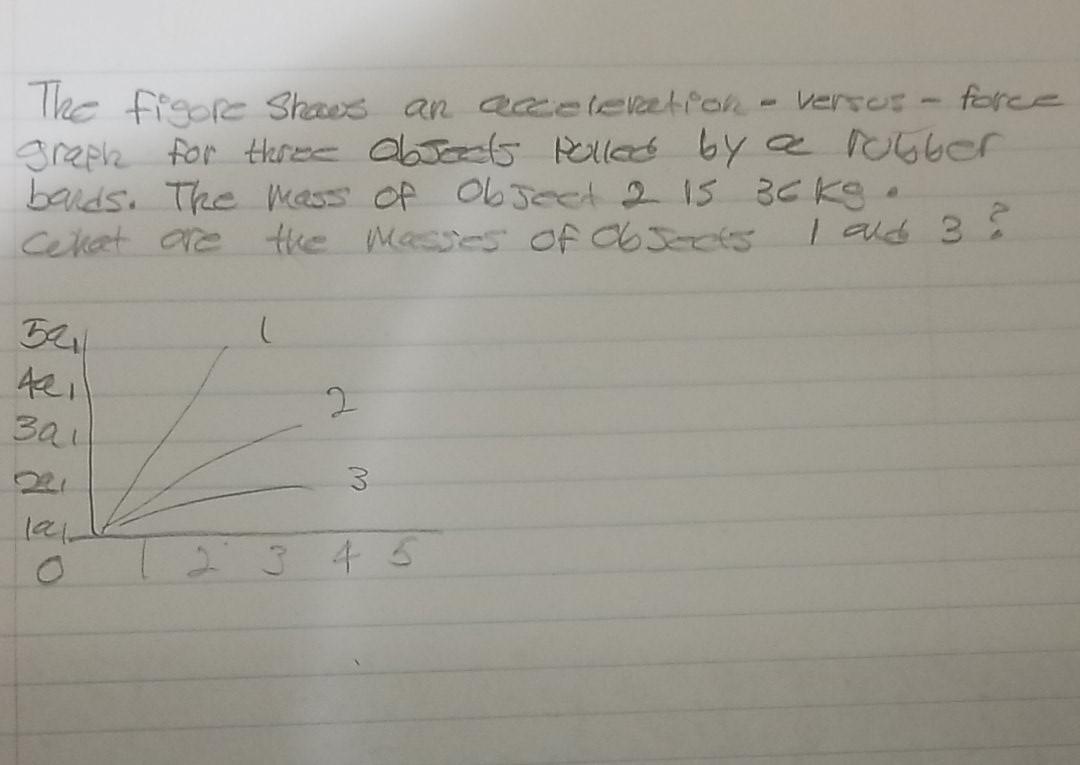 The figure Shows an acceleration - versus - force
graph for three Objects Pulled by a rubber
bands. The Mass of Object 2 is 36 kg.
what are the Masses of Objects 1 and 3?
5a1
1
4a1
2
3a1
2a1
3
1a1
0 1 2 3 4 5